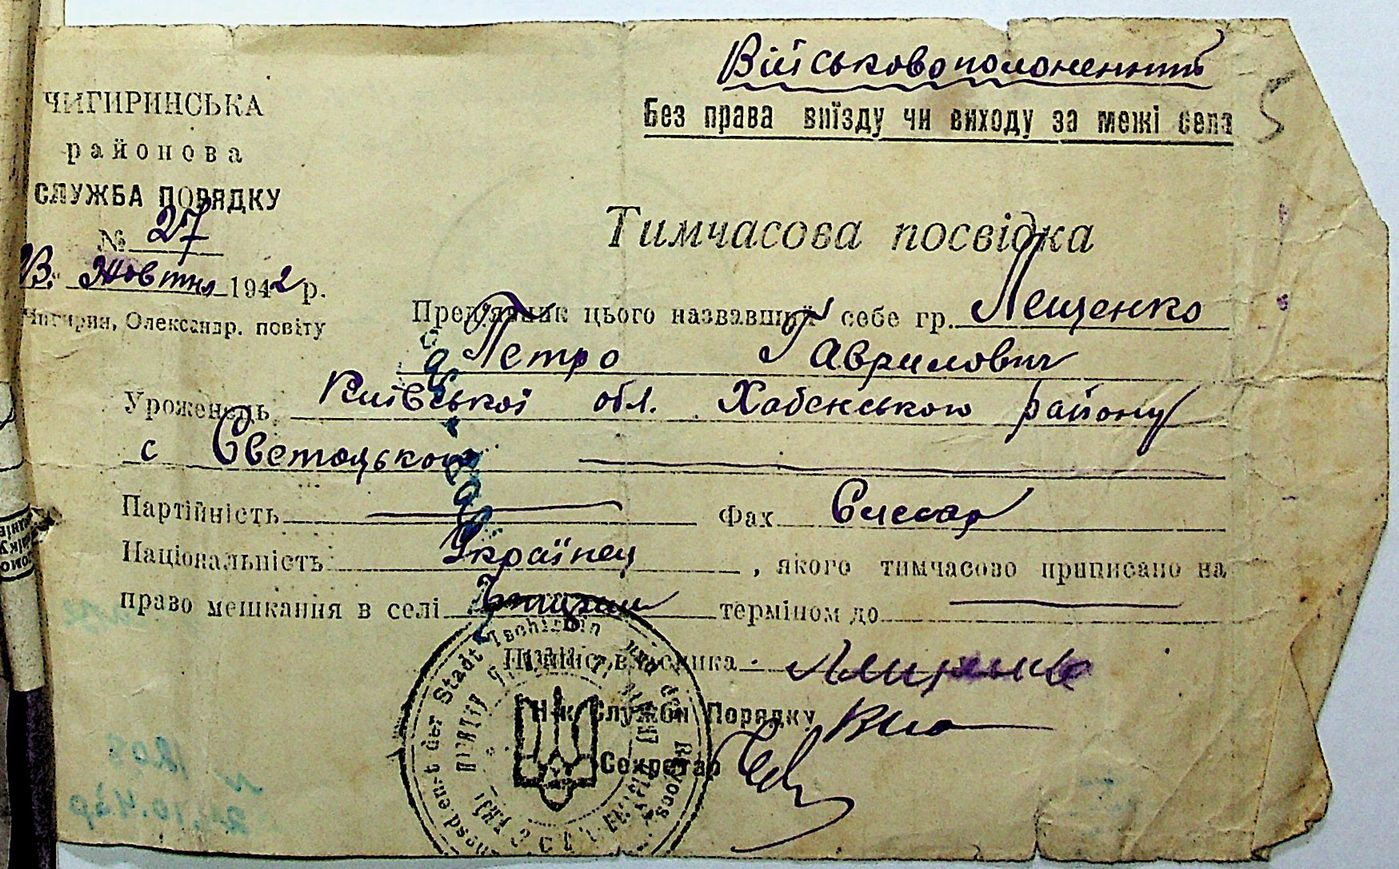 Військовополонений
Без права виїзду чи виходу за межі села
ЧИГИРИНСЬКА
районова
СЛУЖБА ПОРЯДКУ
№ 27
Жовтня 1942 р.
Чигирин, Олександр. повіту
Тимчасова посвідка
Пред'явник цього назвавший себе гр. Лещенко
Петро Гаврилович
Уроженець Київської обл. Хабенського району
с
Партійність — Фах Слесар
Національність Українец, якого тимчасово приписано на
право мешкання в селі Чигирин терміном до —
Підпис власника
Н-к Служби Порядку
Секретар
der Stadt Tschigirin und des Rayons